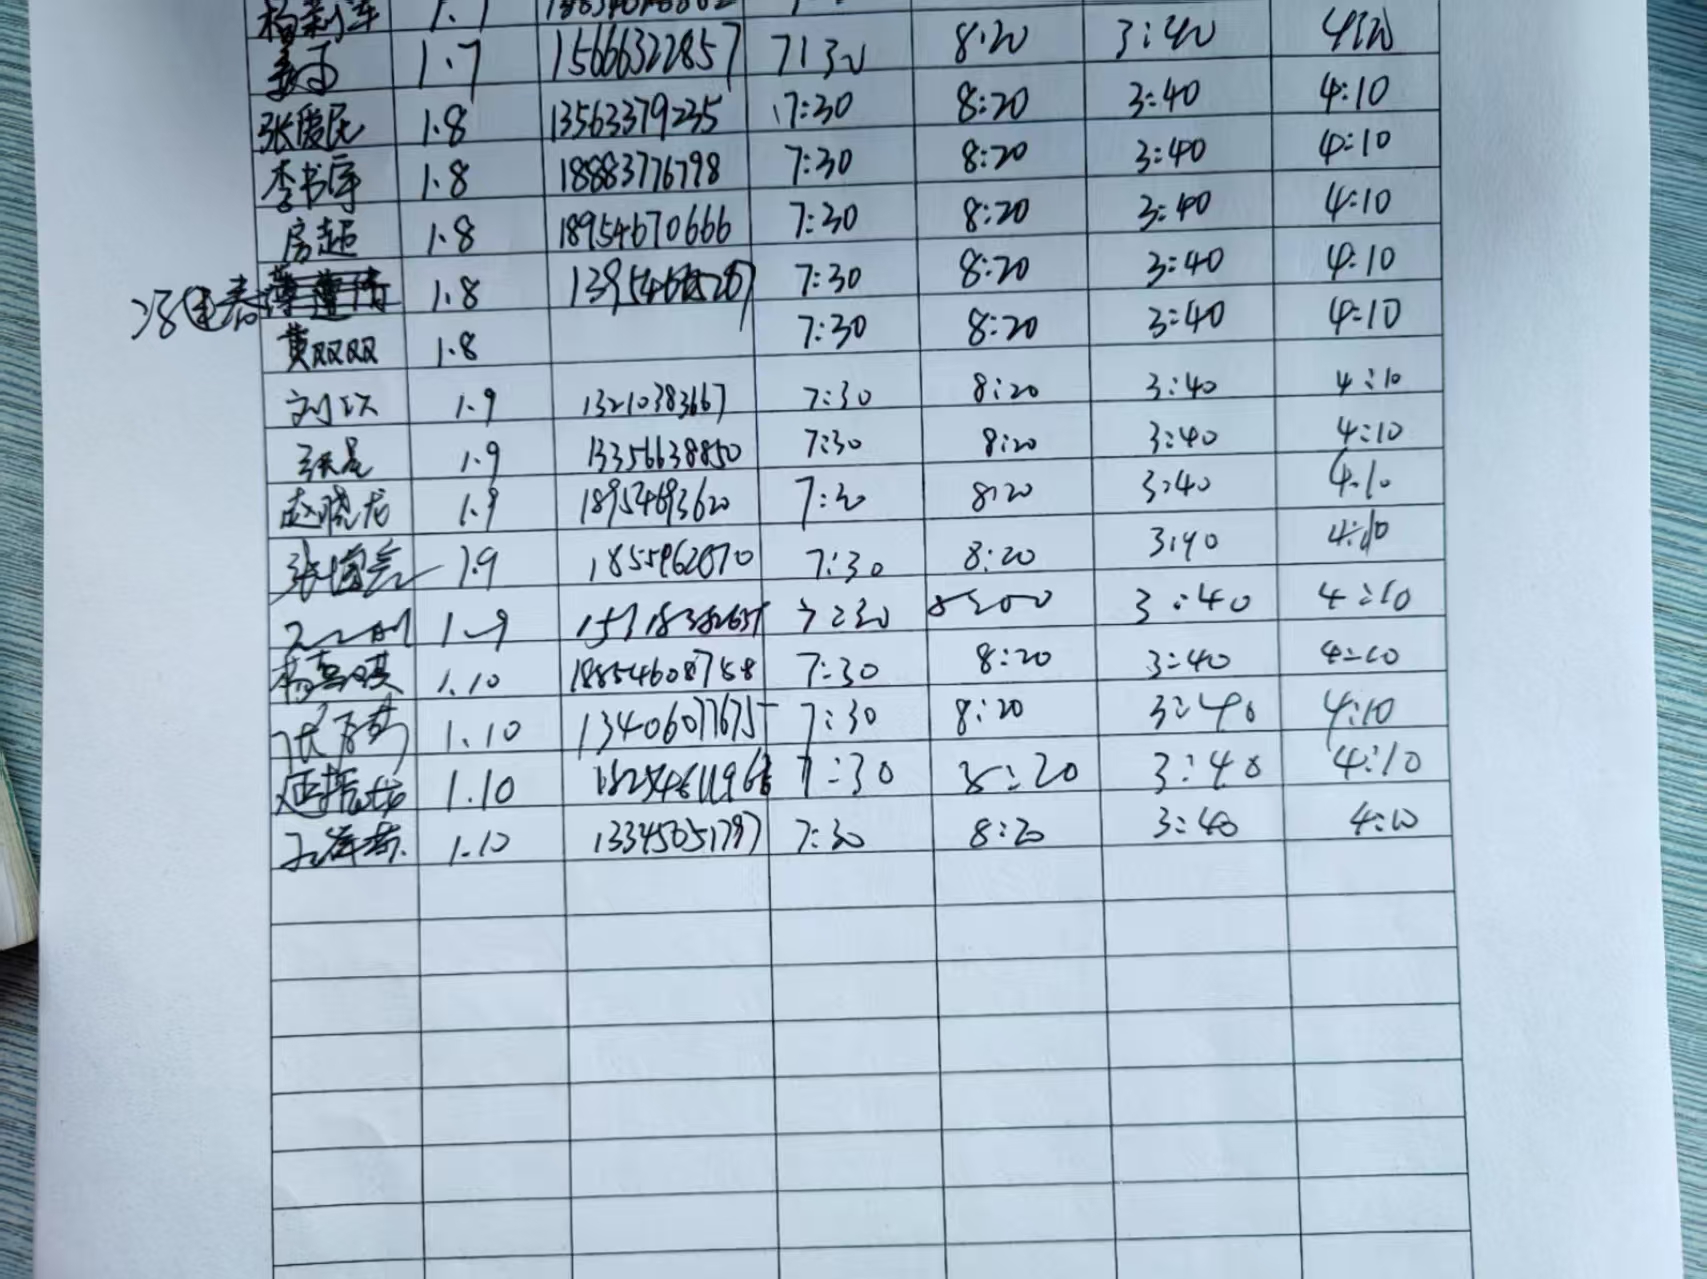 1.7
1.7 15666322857 7:30 8:20 3:40 4:20
张爱民 1.8 13563379235 7:30 8:20 3:40 4:10
李书库 1.8 18883776798 7:30 8:20 3:40 4:10
房超 1.8 18954670666 7:30 8:20 3:40 4:10
冯建春 1.8 7:30 8:20 3:40 4:10
黄双双 1.8 7:30 8:20 3:40 4:10
刘 1.9 13210383667 7:30 8:20 3:40 4:10
1.9 13356638850 7:30 8:20 3:40 4:10
赵晓龙 1.9 18954693620 7:30 8:20 3:40 4:10
张 1.9 7:30 8:20 3:40 4:10
1.9 7:30 3:40 4:10
杨 1.10 18854608768 7:30 8:20 3:40 4:10
1.10 13406077675 7:30 8:20 3:40 4:10
延振龙 1.10 7:30 8:20 3:40 4:10
1.10 13345051797 7:30 8:20 3:40 4:10